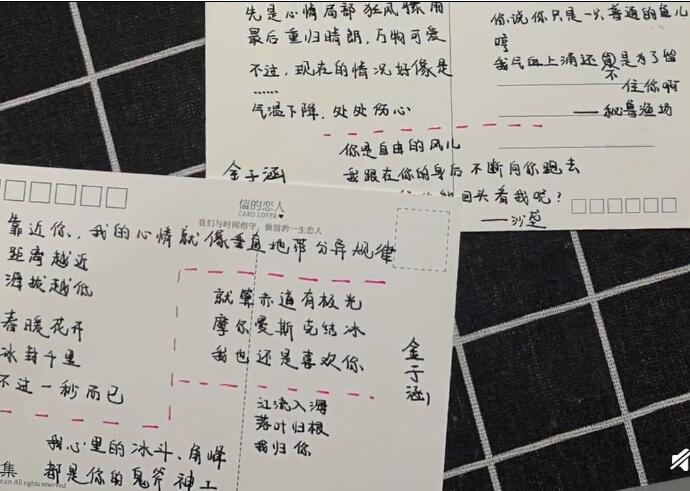 先是心情局部狂风骤雨
最后重归晴朗，万物可爱
不过，现在的情况好像是
……
气温下降，处处伤心
你说你只是一只普通的鱼儿
哼
我气血上涌还不是为了留
住你啊
——秘鲁渔场
你是自由的风儿
我跟在你的身后不断向你跑去
回头看我呢？
——沙草
金子涵
信的恋人
CARD LOVER
我们与时间相守，做信的一生恋人
靠近你，我的心情就像垂直地带分异规律
距离越近
海拔越低
春暖花开
冰封千里
不过一秒而已
就算赤道有极光
摩尔曼斯克结冰
我也还是喜欢你
金子涵
江流入海
落叶归根
我归你
我心里的冰斗、角峰
都是你的鬼斧神工
集
r.cn All rights reserved